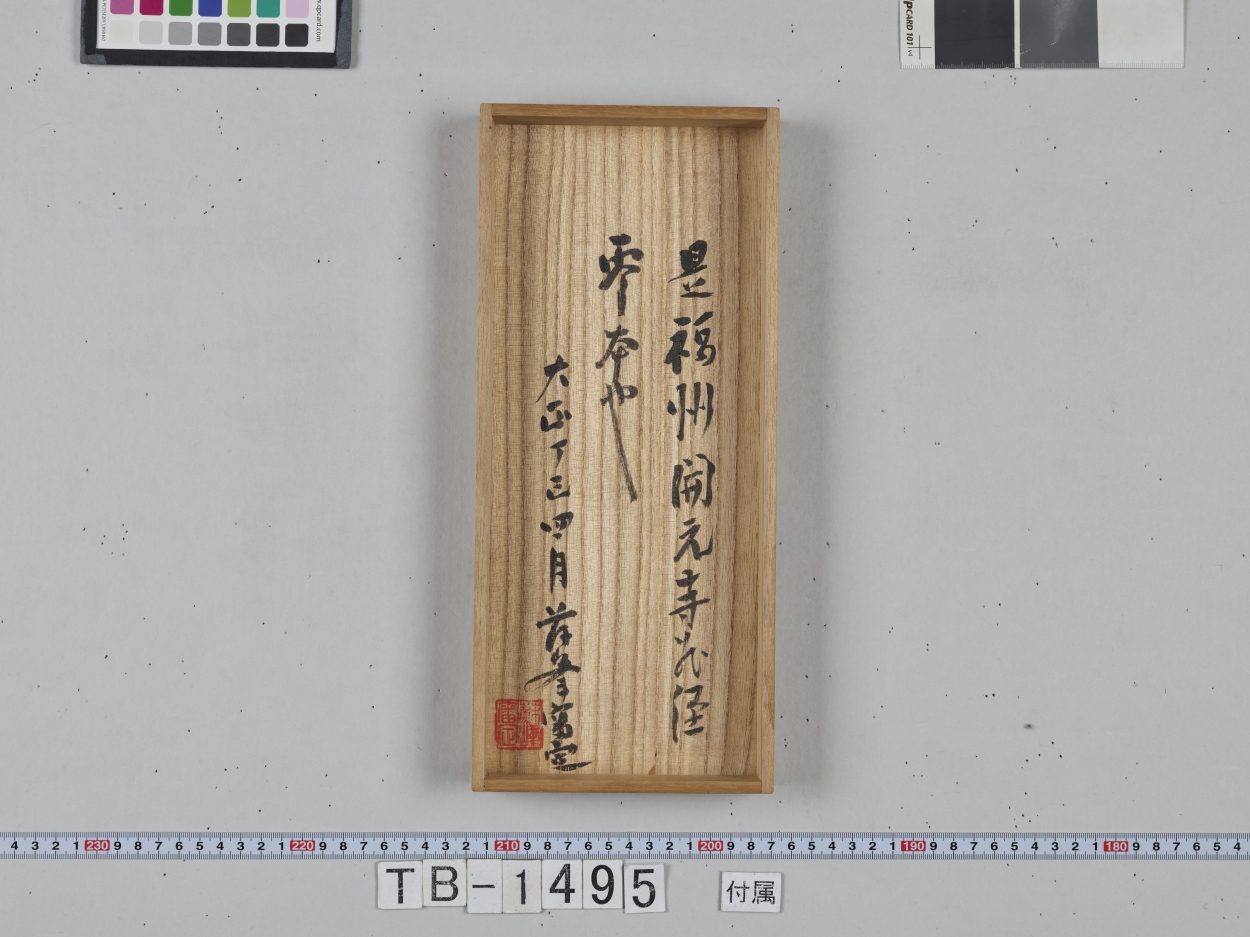 是福州開元寺蔵経
零本也
大正丁巳四月蘇峯菅定
4 3 2 1 230 9 8 7 6 5 4 3 2 1 220 9 8 7 6 5 4 3 2 1 210 9 8 7 6 5 4 3 2 1 200 9 8 7 6 5 4 3 2 1 190 9 8 7 6 5 4 3 2 1 180 9 8 7 6 5 4
TB-1495
付属